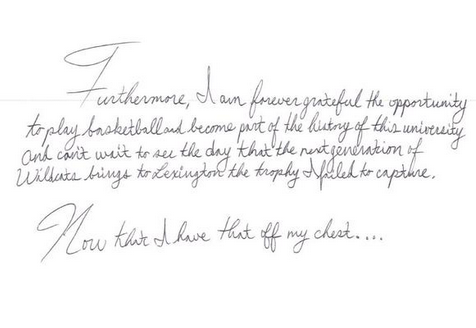 Furthermore, I am forever grateful the opportunity
to play basketball and become part of the history of this university
and can't wait to see the day that the next generation of
Wildcats brings to Lexington the trophy I failed to capture.
Now that I have that off my chest....